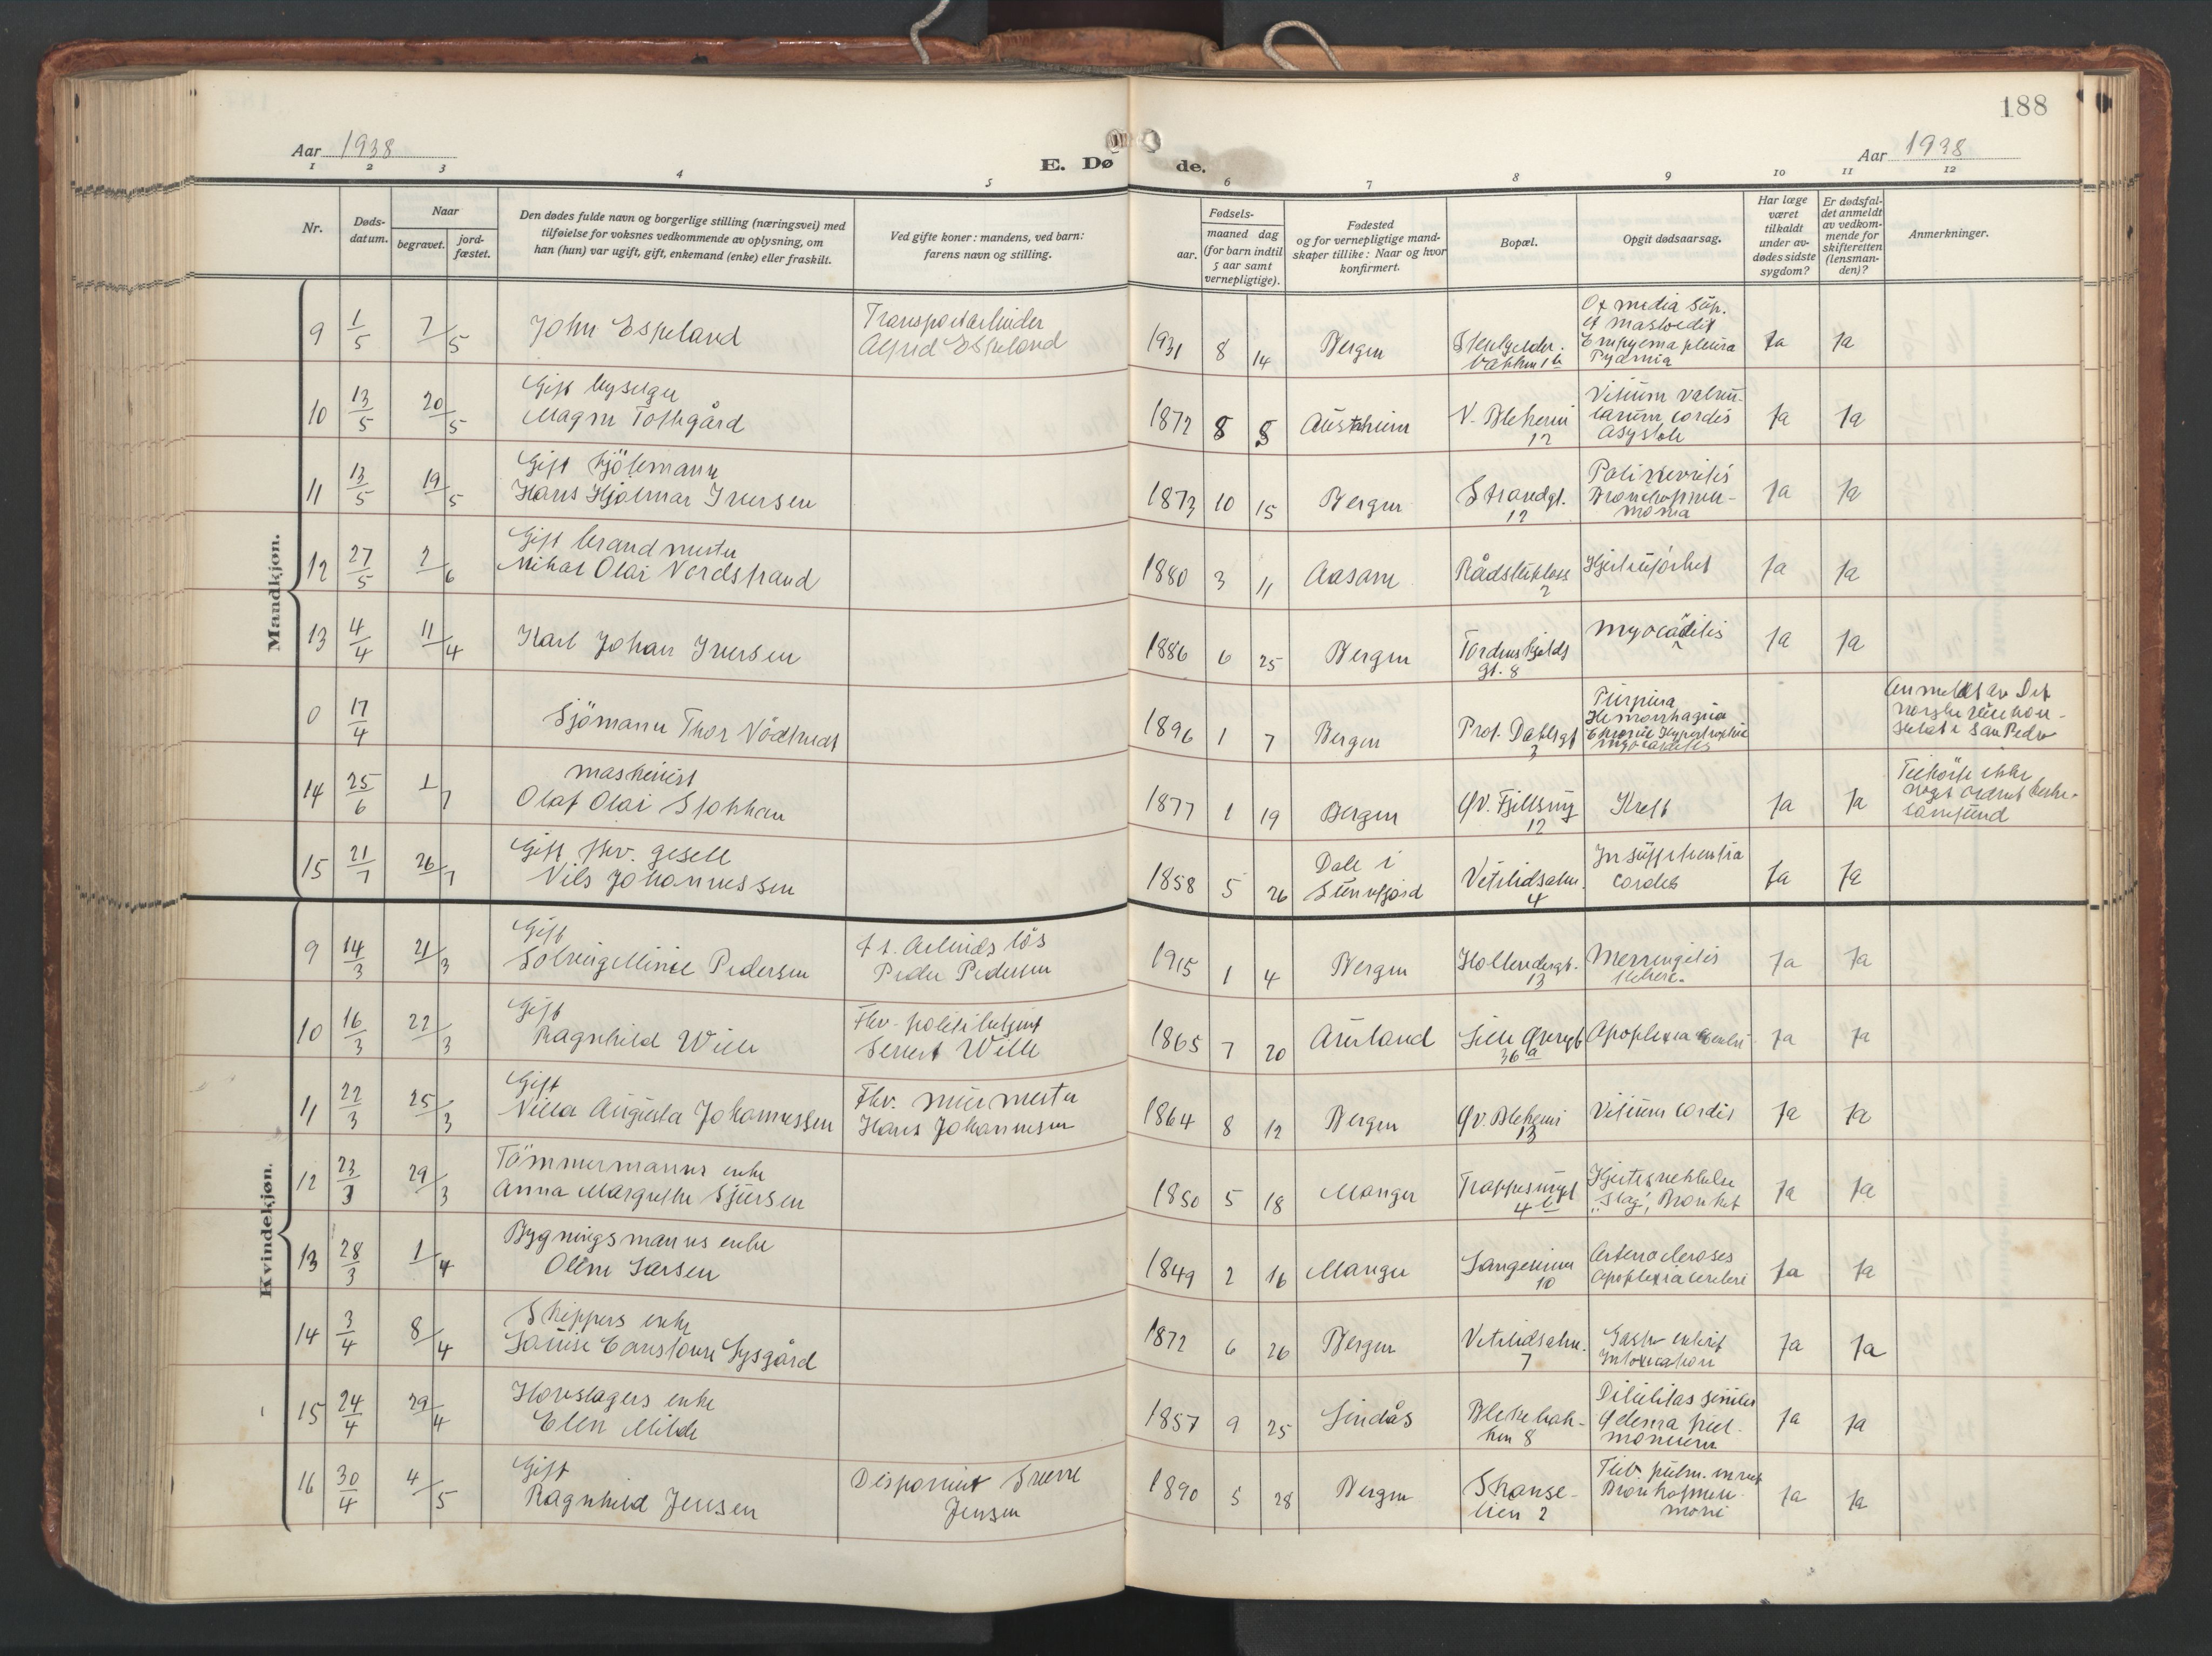 188
Aar 1938
E. Døde.
Aar 1938
1 2 3 4 5 6 7 8 9 10 11 12
Nr.
Døds-datum.
Naar
begravet.
jord-fæstet.
Den dødes fulde navn og borgerlige stilling (næringsvei) med
tilføielse for voksnes vedkommende av oplysning, om
han (hun) var ugift, gift, enkemand (enke) eller fraskilt.
Ved gifte koner: mandens, ved barn:
farens navn og stilling.
Fødsels-
aar.
maaned dag
(for barn indtil
5 aar samt
vernepligtige).
Fødested
og for vernepligtige mand-
skaper tillike: Naar og hvor
konfirmert.
Bopæl.
Opgit dødsaarsag.
Har læge
været
tilkaldt
under av-
dødes sidste
sygdom?
Er dødsfal-
det anmeldt
av vedkom-
mende for
skifteretten
(lensman-
den)?
Anmerkninger.
Mandkjøn.
9 1/5 7/5 John Espeland
Transportarbeider
Alfred Espeland
1931 8 14 Bergen
Bakken 16
Ot media sup.
et mastoedit
Empyema pleura
Pyæmia
Ja Ja
10 13/5 20/5 Gift
Magne Toftgård
1872 8 8 Austrheim
V. Blekevei
12
Vitium valvu-
larum cordis
Asystole
Ja Ja
11 13/5 19/5 Gift
Hans Hjalmar Iversen
1873 10 15 Bergen
Strandgt.
12
Bronchopneu-
monia
Ja Ja
12 27/5 2/6 Gift brandmester
Mikal Olai Nordstrand
1880 3 11 Aasane
Rådstuplass
2
Ja Ja
13 4/4 11/4 Karl Johan Iversen
1886 6 25 Bergen
Tordenskjolds
gt. 8
Ja Ja
0 17/4 Sjömann Thor Nödtvedt
1896 1 7 Bergen
Prof. Dahlsgt
3
Purpura
Hemorrhagica
Chronic Hypertrophic
myocarditis
Anmeldt av Det
norske vicekon-
sulat i San Pedro
14 25/6 1/7 maskinist
Olaf Olai Stokken
1877 1 19 Bergen
Øv. Fjellsmug
12
Kreft
Ja Ja
Tilhörte ikke
noget ordnet kirke-
samfund
15 21/7 26/7 Gift fhv. gesell
Nils Johannessen
1858 5 26 Dale i
Vetrlidsalm.
4
Insufficientia
cordis
Ja Ja
Kvindekjøn.
9 14/3 21/3 Gift
Solveig Minie Pedersen
f.t. arbeidslös
Peder Pedersen
1915 1 4 Bergen
Hollendergt.
13
Meningitis
Ja Ja
10 16/3 22/3 Gift
Ragnhild Wille
Fhv. politibetjent
Sexert Wille
1865 7 20 Aurland
Lille Øvregt
36a
Apoplexia cerebri
Ja Ja
11 22/3 25/3 Gift
Milla Augusta Johannessen
Fhv. murmester
Hans Johannesen
1864 8 12 Bergen
Øv. Blekevei
13
Vitium cordis
Ja Ja
12 23/3 29/3 Tömmermanns enke
Anna Margrethe Sjursen
1850 5 18 Manger
Trappesmugt
4 b
Hjertesvekkelse
"Slag", Bronkit
Ja Ja
13 28/3 1/4 Bygningsmanns enke
Oline Larsen
1849 2 16 Manger
Langerinen
10
Arteriosclerosis
Apoplexia cerebri
Ja Ja
14 3/4 8/4 Skippers enke
Lovise Constance Lysgård
1872 6 26 Bergen
Vetrlidsalm.
7
Gastro enterit
Intoxication
Ja Ja
15 24/4 29/4 Hovslagers enke
Elen Milde
1857 9 25 Lindås
Blekebak-
ken 8
Debilitas senilis
Ødema pul-
monum
Ja Ja
16 30/4 4/5 Gift
Ragnhild Jensen
Disponent Sverre
Jensen
1890 5 28 Bergen
Skanse-
lien 2
Bronkopneu-
moni
Ja Ja